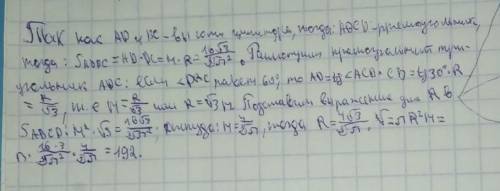 Так как AD и BC-высоты цилиндра, тогда: ABCD-прямоугольник,
тогда: S ABDC = HD·DC = H·R = 16√3/∛π². Рассмотрим прямоугольный треу-
угольник ADC: если <DAC равен 60°, то AD = tg<ACD·CD = tg30°·R
= R/√3, т.е H = R/√3 или R = √3H Подставим выражение для R в
S ABCD: H²·√3 = 16√3/∛π², откуда: H = 4/∛π, тогда R = 4√3/∛π, V = πR²H =
π· 16·3/∛π² · 4/∛π = 192.